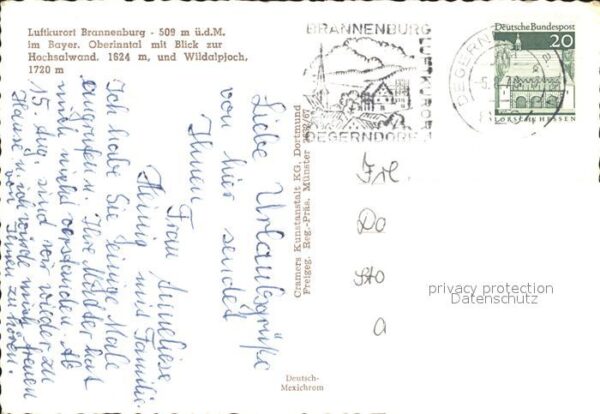 Luftkurort Brannenburg - 509 m ü.d.M.
im Bayer. Oberinntal mit Blick zur
Hochsalwand, 1624 m, und Wildalpjoch,
1720 m
BRANNENBURG
LUFTKURORT
DEGERNDORF
DEGERN
-5.
Deutsche Bundespost
20
LORSCH/HESSEN
Liebe Urlaubsgrüße
von hier sendet
Ihnen
Frau Anneliese
Hennig und Familie
Ich habe Sie einige Male
angerufen. Ihre Mutter hat
mich nicht verstanden. Ab
15. Aug. sind wir wieder zu
Hause u. ich würde mich freuen
von Ihnen zu hören.
Cramers Kunstanstalt KG, Dortmund
Freigeg. Reg.-Präs. Münster
Frl.
Do
Sto
a
privacy protection
Datenschutz
Deutsch-
Mexichrom